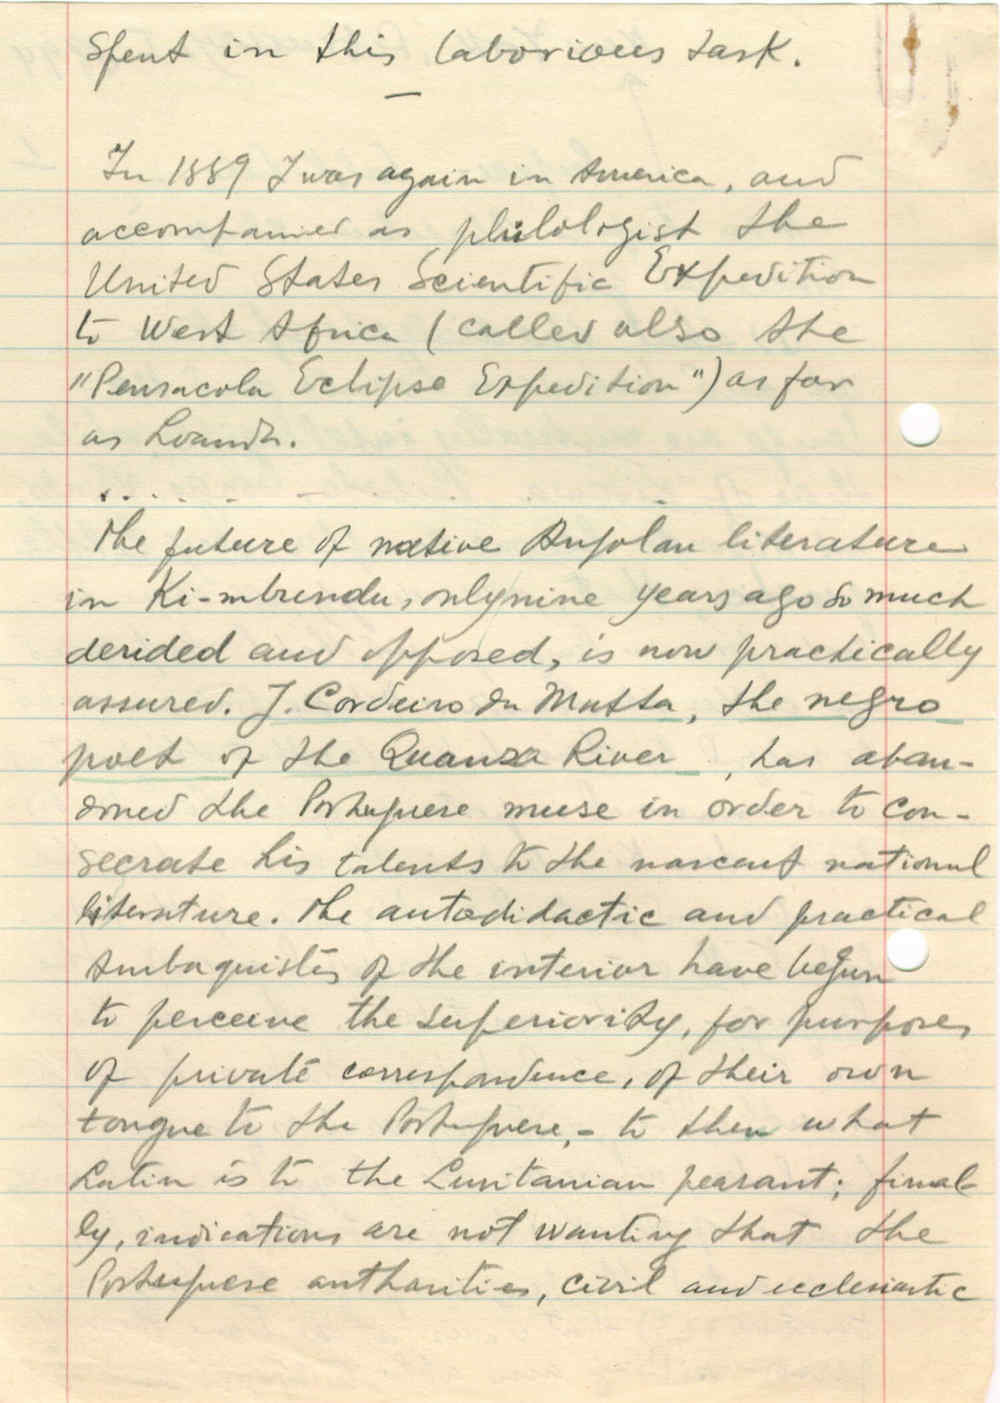 spent in this laborious task.
—
In 1889 I was again in America, and
accompanied as philologist the
United States Scientific Expedition
to West Africa (called also the
"Pensacola Eclipse Expedition") as far
as Loanda.
. . . . . - - . . - . .
The future of native Angolan literature
in Ki-mbundu, only nine years ago so much
derided and opposed, is now practically
assured. J. Cordeiro da Matta, the negro
poet of the Quanza River, has aban-
doned the Portuguese muse in order to con-
secrate his talents to the nascent national
literature. The autodidactic and practical
Ambaquistas of the interior have begun
to perceive the superiority, for purposes
of private correspondence, of their own
tongue to the Portuguese, - to them what
Latin is to the Lusitanian peasant; final-
ly, indications are not wanting that the
Portuguese authorities, civil and ecclesiastic